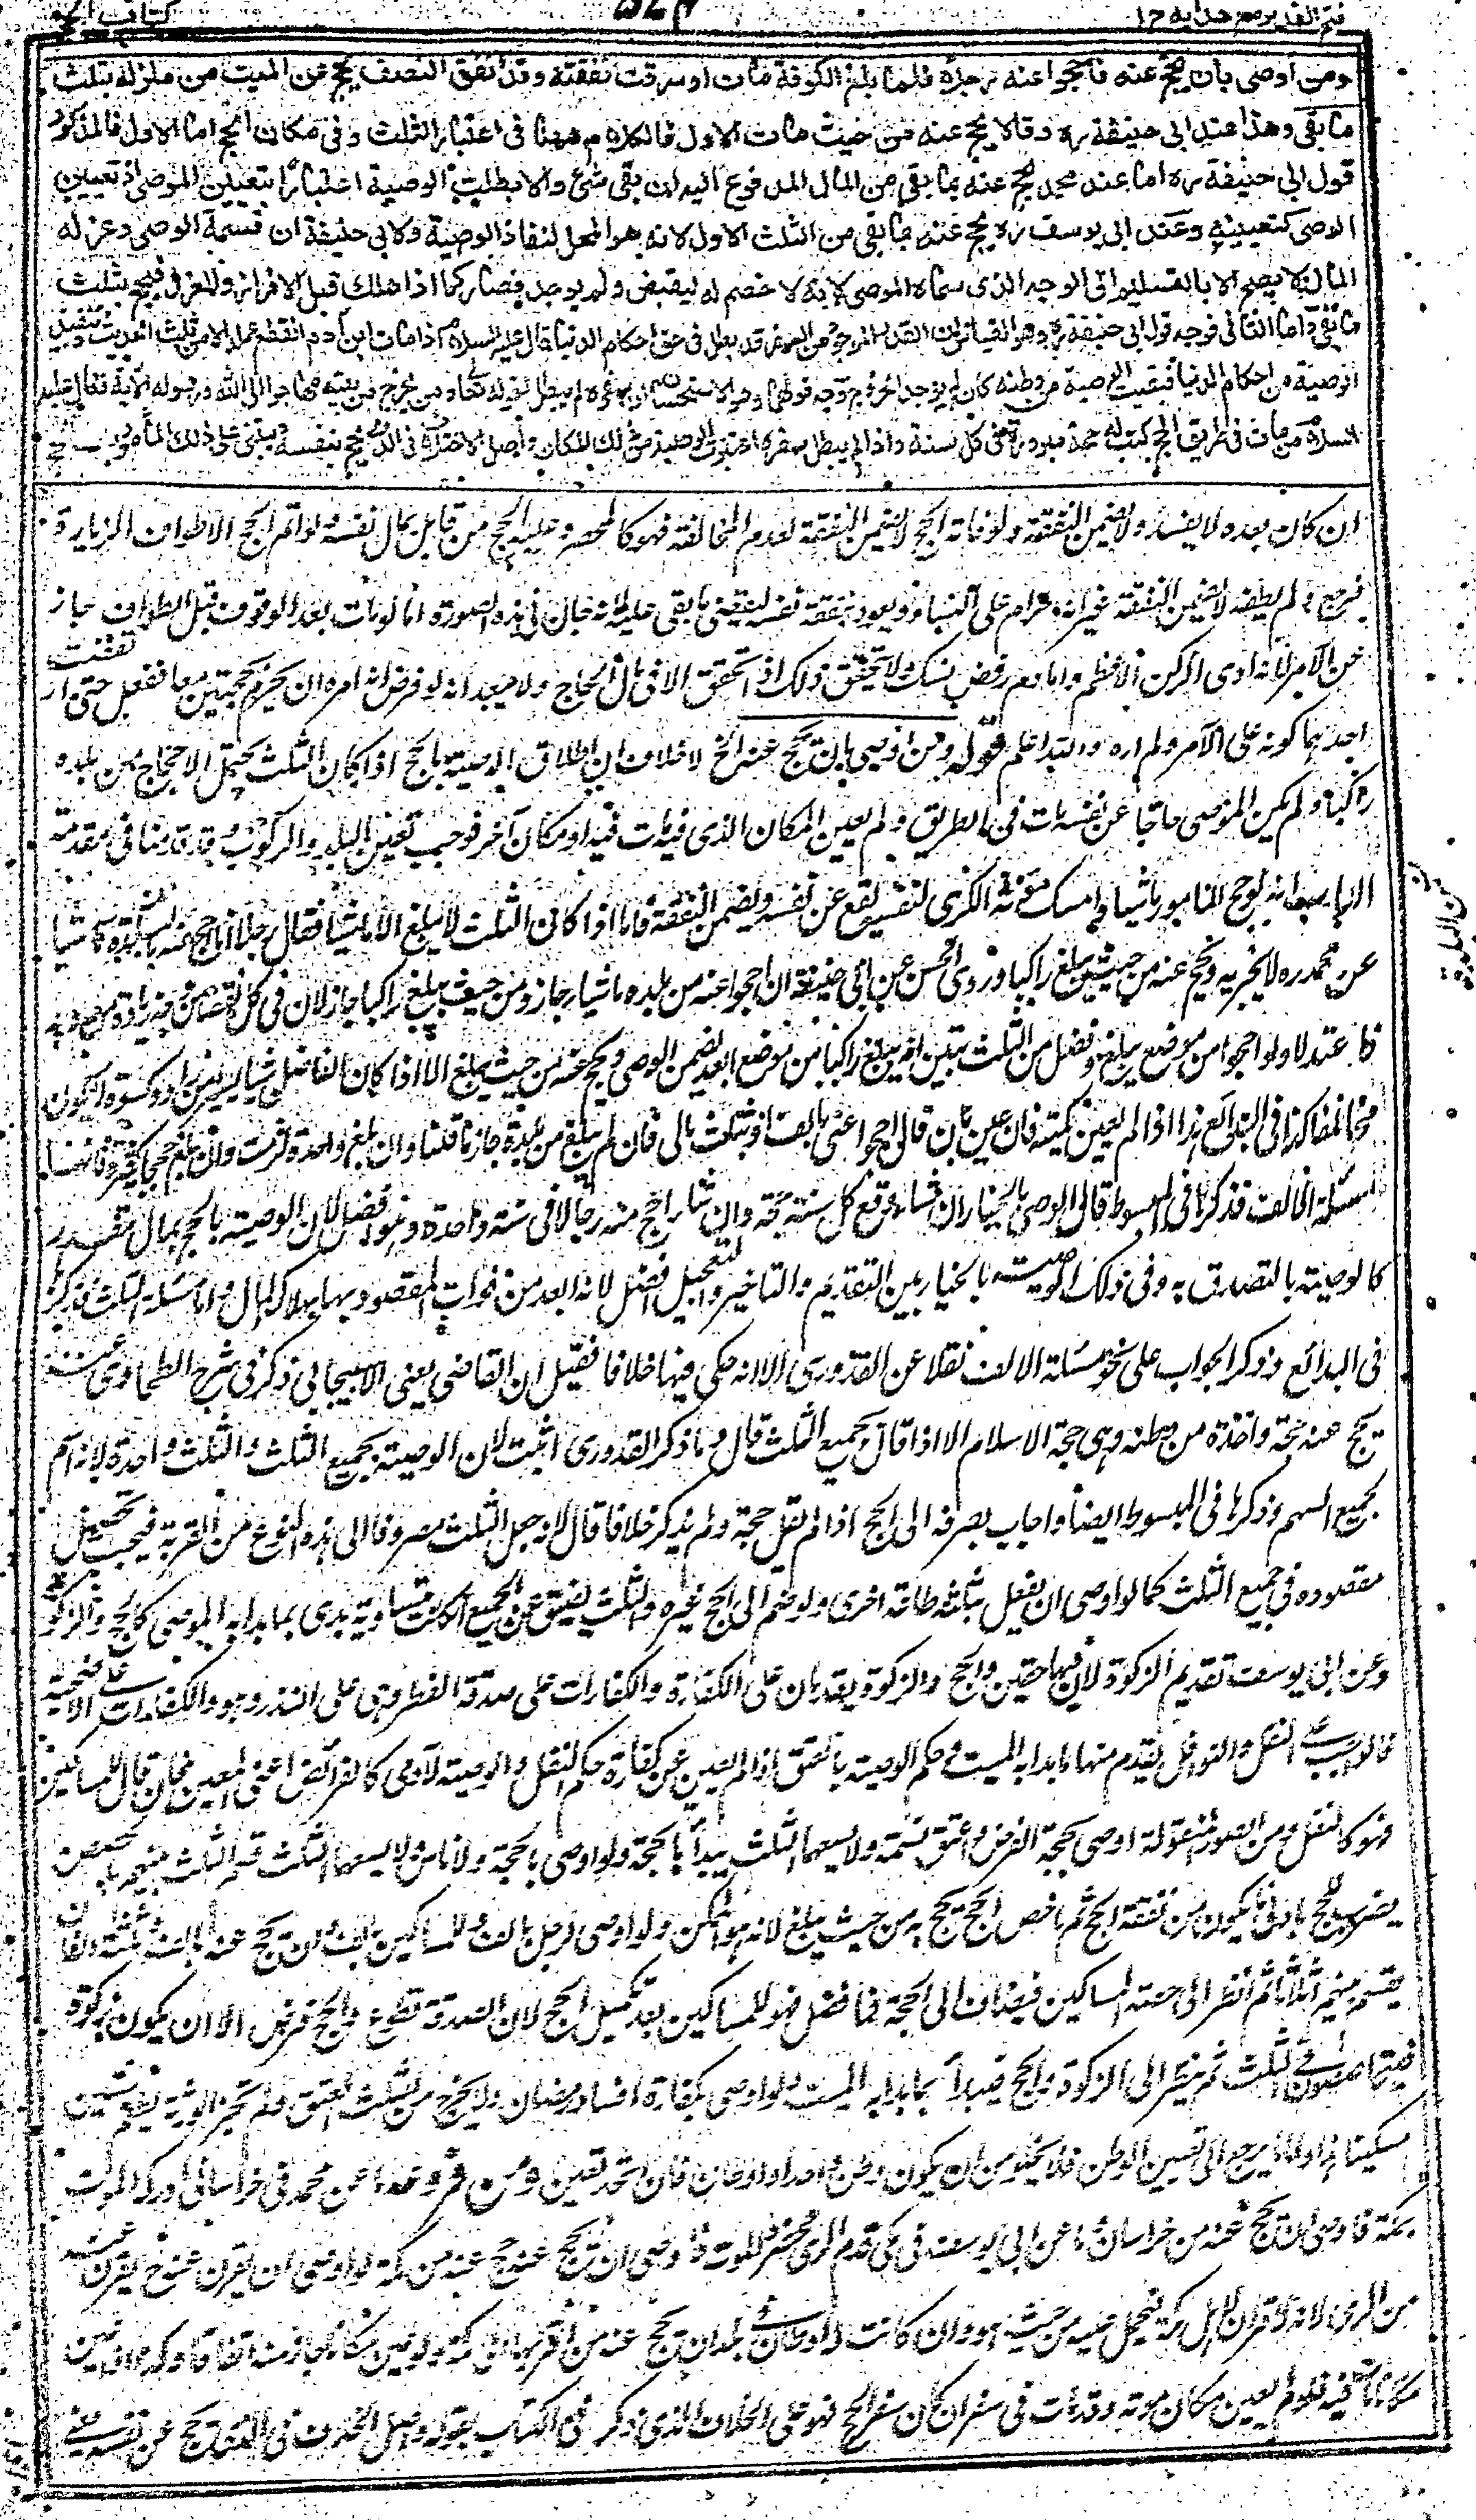 فتح القدير مع هداية ج ا
كتاب الحج
ومن اوصى بان يحج عنه فاحجوا عنه رجلا فلما بلغ الكوفة مات او سرقت نفقته وقد انفق النصف يحج عن الميت من منزله بثلث
ما بقى وهذا عند ابى حنيفة ره وقالا يحج عنه من حيث مات الاول فالكلام ههنا فى اعتبار الثلث وفى مكان الحج اما الاول فالمذكور
قول ابى حنيفة ره اما عند محمد يحج عنه بما بقى من المال المدفوع اليه ان بقى شئ والا بطلت الوصية اعتبارا بتعيين الموصى اذ تعيين
الوصى كتعيينه وعند ابى يوسف ره يحج عنه بما بقى من الثلث الاول لانه هو المحل لنفاذ الوصية ولابى حنيفة ان قسمة الوصى وعزله
المال لا يصح الا بالتسليم الى الوجه الذى سماه الموصى لانه لا خصم له ليقبض ولم يوجد فصار كما اذا هلك قبل الافراز والعزل فيحج بثلث
ما بقى واما الثانى فوجه قول ابى حنيفة ره وهو القياس ان القدر الموجود من السفر قد بطل فى حق احكام الدنيا قال عليه السلام اذا مات ابن ادم انقطع عمله الا من ثلث الحديث وتنفيذ
الوصية من احكام الدنيا فبقيت الوصية من وطنه كان لم يوجد الخروج وجه قولهما وهو الاستحسان ان سفره لم يبطل لقوله تعالى ومن يخرج من بيته مهاجرا الى الله ورسوله الاية وقال عليه
السلام من مات فى طريق الحج كتب له حجة مبرورة فى كل سنة واذا لم يبطل سفره اعتبرت الوصية من ذلك المكان واصل الاختلاف فى الذى يحج بنفسه وينبنى على ذلك المأمور بالحج
ان كان بعده لا يفسد ولا يضمن النفقة ولو فاته الحج لا يضمن النفقة لعدم المخالفة فهو كالمحصر وعليه الحج من قابل بمال نفسه ولو اتم الحج الا طواف الزيارة
فرجع ولم يطفه لا يضمن النفقة غير انه حرام على النساء ويعود بنفقة نفسه ليقضى ما بقى عليه لانه جان فى هذه الصورة اما لو مات بعد الوقوف قبل الطواف جاز
عن الآمر لانه ادى الركن الاعظم واما دم رفض نسك لا يتحقق ذلك اذا تحقق الا فى مال الحاج ولا يبعد انه لو فرض انه امره ان يحرم بحجتين معا ففعل حتى ارتفضت
احدهما كونه على الآمر ولم اره والله اعلم قوله ومن اوصى بان يحج عنه الخ لا خلاف ان اطلاق الوصية بالحج اذا كان الثلث يحتمل الاحجاج من بلده
راكبا ولم يكن الموصى حاجا عن نفسه مات فى الطريق ولم يعين المكان الذى فيه مات فيه او مكان آخر فوجب تعين البلد والركوب
عن محمد ره لا يجزيه ويحج عنه من حيث يبلغ راكبا وروى الحسن عن ابى حنيفة ان احجوا عنه من بلده ماشيا جاز ومن حيث يبلغ راكبا جاز لان فى كل نقصا من وجه زيادة من وجه
فاعتدلا ولو احجوا من موضع يبلغ وفضل من الثلث تبين انه يبلغ راكبا من موضع ابعد يضمن الوصى ويحج عنه من حيث يبلغ الا اذا كان الفاضل شيئا يسيرا من زاد وكسوة فلا يكون
مخالفا كذا فى البدائع هذا اذا لم يعين كمية فان عين بان قال احجوا عنى بالف او بثلث مالى فان لم يبلغ من بلده جاز ما قلنا وان بلغ واحدة لزمت وان بلغ حججا كثيرة
مسئلة الالف فذكرها فى المبسوط قال الوصى بالخيار ان شاء دفع كل سنة حجة وان شاء احج عنه رجالا فى سنة واحدة وهو افضل لان الوصية بالحج بمال مقدر
كالوصية بالتصدق به وفى ذلك الوصى بالخيار بين التقديم والتاخير والتعجيل افضل لانه ابعد من فوات المقصود بهلاك المال واما مسئلة الثلث فذكرها
فى البدائع وذكر الجواب على نحو مسئلة الالف نقلا عن القدورى الا انه حكى فيها خلافا فقيل ان القاضى يعنى الاسبيجابى ذكر فى شرح الطحاوى
يحج عنه حجة واحدة من وطنه وهى حجة الاسلام الا اذا قال بجميع الثلث قال وما ذكر القدورى اثبت لان الوصية بجميع الثلث والثلث واحدة لانه اسم
لجميع السهم وذكرها فى المبسوط ايضا واجاب بصرفه الى الحج اذا لم يقل حجة ولم يذكر خلافا قال لانه جعل الثلث مصروفا الى هذا النوع من القربة فيجب تحصيل
مقصوده فى جميع الثلث كما لو اوصى ان يفعل بثلثه طاعة اخرى ولو ضم الى الحج غيره والثلث يضيق عن الجميع ان كانت متساوية بدى بما بدا به الموصى كالحج والزكوة
وعن ابى يوسف تقديم الزكوة لان فيها حقين والحج والزكوة يقدمان على الكفارة والكفارات على صدقة الفطر وهى على النذر وهو والكفارات على الاضحية
والواجب على النفل والنوافل يقدم منها ما بدا به الميت وحكم الوصية بالعتق اذا لم يعين عن كفارة حكم النفل والوصية لآدمى كالفرائض اعنى المعين فان قال للمساكين
فهو كالنفل ومن الصور المنقولة اوصى بحجة الفرض وعتق نسمة ولا يسعهما الثلث يبدأ بالحجة ولو اوصى بالحجة ولاناس لا يسعها الثلث قسم الثلث بينهم بالحصص
يضرب للحج بادنى ما يكون من نفقة الحج ثم ما خص الحج يحج به من حيث يبلغ لانه هو الممكن ولو اوصى لرجل بالف وللمساكين بالف وان يحج عنه بالف وثلثه الفان
يقسم بينهم اثلاثا ثم انظر الى حصة المساكين فيضاف الى الحجة فما فضل فهو للمساكين بعد تكميل الحج لان الصدقة تطوع والحج فرض الا ان يكون زكوة
فيتحاصون فى الثلث ثم ينظر الى الزكوة والحج فيبدأ بما بدا به الميت ولو اوصى بكفارة افساد رمضان ولم يخرج من الثلث العتق ولم تجز الورثة يطعم ستين
مسكينا هذا واما ما يرجع الى تعيين الوطن فلا يخلو من ان يكون وطن واحد او اوطان فان اتحد تعين ومن فروعه ما عن محمد فى خراسانى ادركه الموت
بمكة فاوصى ان يحج عنه من خراسان وما عن ابى يوسف فى مكى قدم الرى فحضره الموت فاوصى ان يحج عنه حج عنه من مكة ولو اوصى ان يقرن عنه يقرن عنه
من الرى لانه لا قران لاهل مكة فيحمل عليه من حيث هو وان كانت له اوطان فى بلدان يحج عنه من اقربها الى مكة ولو عين مكانا جاز منه اتفاقا وكذا اذا عين
مكانا مات فيه فلو لم يعين مكان موته وقد مات فى سفر ان كان سفر الحج فهو على الخلاف الذى ذكر فى الكتاب بقوله واصل الخلاف فى الذى يحج عن نفسه يعنى